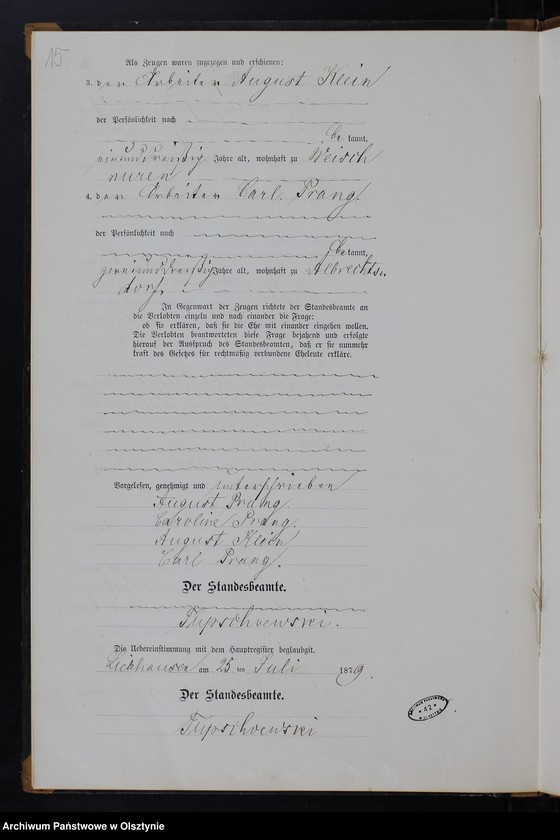 15
Als Zeugen waren zugezogen und erschienen:
3. der Arbeiter August Klein
der Persönlichkeit nach
be kannt,
einunddreißig Jahre alt, wohnhaft zu Weisch
nuren
4. der Arbeiter Carl Prang
der Persönlichkeit nach
be kannt,
zweiunddreißig Jahre alt, wohnhaft zu Albrechts-
dorf
In Gegenwart der Zeugen richtete der Standesbeamte an
die Verlobten einzeln und nach einander die Frage:
ob sie erklären, daß sie die Ehe mit einander eingehen wollen.
Die Verlobten beantworteten diese Frage bejahend und erfolgte
hierauf der Ausspruch des Standesbeamten, daß er sie nunmehr
kraft des Gesetzes für rechtmäßig verbundene Eheleute erkläre.
Vorgelesen, genehmigt und unterschrieben
August Prang.
Caroline Prang.
August Klein
Carl Prang.
Der Standesbeamte.
Die Uebereinstimmung mit dem Hauptregister beglaubigt.
am 25 ten Juli 1879.
Der Standesbeamte.
* 42 *
Archiwum Państwowe w Olsztynie